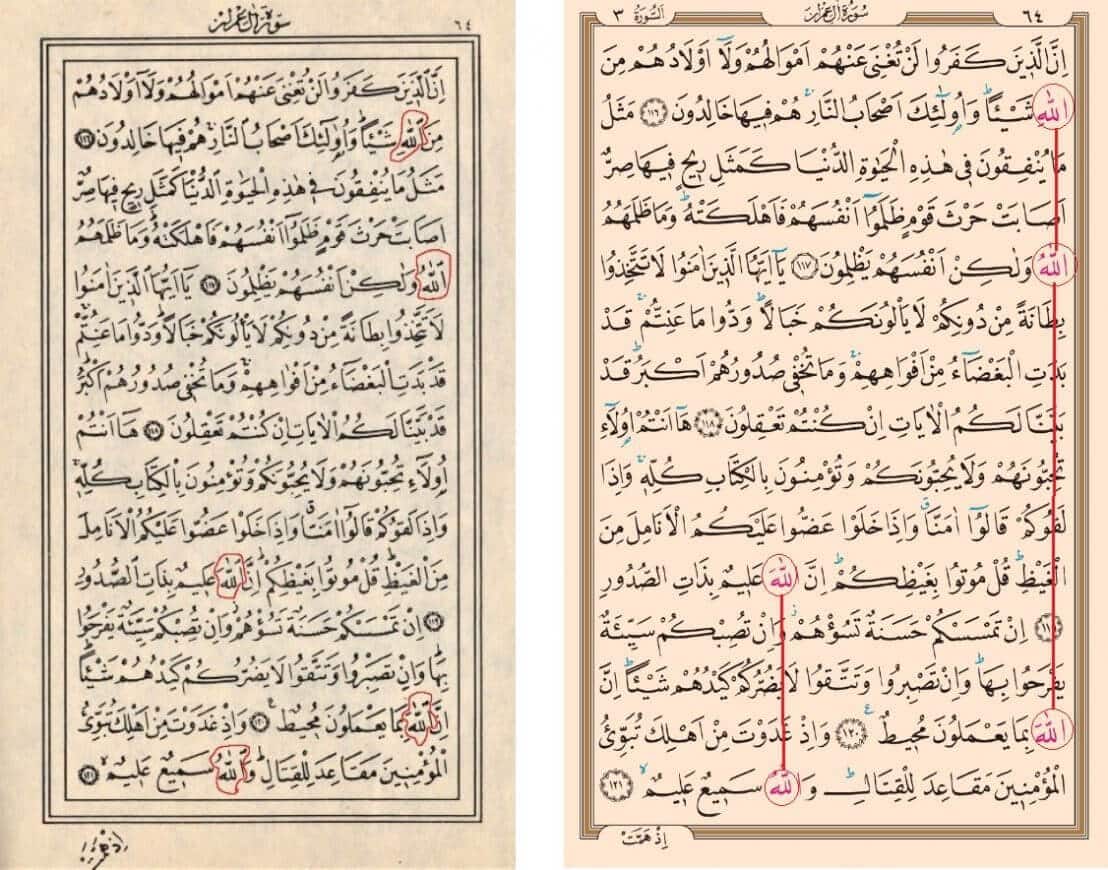 ٦٤ سُورَةُ اٰلِ عِمْرَانَ اَلسُّورَةُ ٣
اِنَّ الَّذٖينَ كَفَرُوا لَنْ تُغْنِىَ عَنْهُمْ اَمْوَالُهُمْ وَلَٓا اَوْلَادُهُمْ مِنَ
اللّٰهِ شَيْـًٔاؕ وَاُو۬لٰٓئِكَ اَصْحَابُ النَّارِۚ هُمْ فٖيهَا خَالِدُونَ ﴿١١٦﴾ مَثَلُ
مَا يُنْفِقُونَ فٖى هٰذِهِ الْحَيٰوةِ الدُّنْيَا كَمَثَلِ رٖيحٍ فٖيهَا صِرٌّ
اَصَابَتْ حَرْثَ قَوْمٍ ظَلَمُٓوا اَنْفُسَهُمْ فَاَهْلَكَتْهُؕ وَمَا ظَلَمَهُمُ
اللّٰهُ وَلٰكِنْ اَنْفُسَهُمْ يَظْلِمُونَ ﴿١١٧﴾ يَٓا اَيُّهَا الَّذٖينَ اٰمَنُوا لَا تَتَّخِذُوا
بِطَانَةً مِنْ دُونِكُمْ لَا يَأْلُونَكُمْ خَبَالًاؕ وَدُّوا مَا عَنِتُّمْۚ قَدْ
بَدَتِ الْبَغْضَٓاءُ مِنْ اَفْوَاهِهِمْۚ وَمَا تُخْفٖى صُدُورُهُمْ اَكْبَرُؕ قَدْ
بَيَّنَّا لَكُمُ الْاٰيَاتِ اِنْ كُنْتُمْ تَعْقِلُونَ ﴿١١٨﴾ هَٓا اَنْتُمْ اُو۬لَٓاءِ
تُحِبُّونَهُمْ وَلَا يُحِبُّونَكُمْ وَتُؤْمِنُونَ بِالْكِتَابِ كُلِّهٖۚ وَاِذَا
لَقُوكُمْ قَالُٓوا اٰمَنَّاۗ وَاِذَا خَلَوْا عَضُّوا عَلَيْكُمُ الْاَنَامِلَ مِنَ
الْغَيْظِؕ قُلْ مُوتُوا بِغَيْظِكُمْؕ اِنَّ اللّٰهَ عَلٖيمٌ بِذَاتِ الصُّدُورِ
﴿١١٩﴾ اِنْ تَمْسَسْكُمْ حَسَنَةٌ تَسُؤْهُمْؗ وَاِنْ تُصِبْكُمْ سَيِّئَةٌ
يَفْرَحُوا بِهَاؕ وَاِنْ تَصْبِرُوا وَتَتَّقُوا لَا يَضُرُّكُمْ كَيْدُهُمْ شَيْـًٔاؕ اِنَّ
اللّٰهَ بِمَا يَعْمَلُونَ مُحٖيطٌ ﴿١٢٠﴾ وَاِذْ غَدَوْتَ مِنْ اَهْلِكَ تُبَوِّئُ
الْمُؤْمِنٖينَ مَقَاعِدَ لِلْقِتَالِؕ وَاللّٰهُ سَمٖيعٌ عَلٖيمٌۙ ﴿١٢١﴾
اِذْ هَمَّتْ
٦٤ سُورَةُ اٰلِ عِمْرَانَ
اِنَّ الَّذٖينَ كَفَرُوا لَنْ تُغْنِىَ عَنْهُمْ اَمْوَالُهُمْ وَلَٓا اَوْلَادُهُمْ
مِنَ اللّٰهِ شَيْـًٔاؕ وَاُو۬لٰٓئِكَ اَصْحَابُ النَّارِۚ هُمْ فٖيهَا خَالِدُونَ ﴿١١٦﴾
مَثَلُ مَا يُنْفِقُونَ فٖى هٰذِهِ الْحَيٰوةِ الدُّنْيَا كَمَثَلِ رٖيحٍ فٖيهَا صِرٌّ
اَصَابَتْ حَرْثَ قَوْمٍ ظَلَمُٓوا اَنْفُسَهُمْ فَاَهْلَكَتْهُؕ وَمَا ظَلَمَهُمُ
اللّٰهُ وَلٰكِنْ اَنْفُسَهُمْ يَظْلِمُونَ ﴿١١٧﴾ يَٓا اَيُّهَا الَّذٖينَ اٰمَنُوا
لَا تَتَّخِذُوا بِطَانَةً مِنْ دُونِكُمْ لَا يَأْلُونَكُمْ خَبَالًاؕ وَدُّوا مَا عَنِتُّمْۚ
قَدْ بَدَتِ الْبَغْضَٓاءُ مِنْ اَفْوَاهِهِمْۚ وَمَا تُخْفٖى صُدُورُهُمْ اَكْبَرُؕ
قَدْ بَيَّنَّا لَكُمُ الْاٰيَاتِ اِنْ كُنْتُمْ تَعْقِلُونَ ﴿١١٨﴾ هَٓا اَنْتُمْ
اُو۬لَٓاءِ تُحِبُّونَهُمْ وَلَا يُحِبُّونَكُمْ وَتُؤْمِنُونَ بِالْكِتَابِ كُلِّهٖۚ
وَاِذَا لَقُوكُمْ قَالُٓوا اٰمَنَّاۗ وَاِذَا خَلَوْا عَضُّوا عَلَيْكُمُ الْاَنَامِلَ
مِنَ الْغَيْظِؕ قُلْ مُوتُوا بِغَيْظِكُمْؕ اِنَّ اللّٰهَ عَلٖيمٌ بِذَاتِ الصُّدُورِ
﴿١١٩﴾ اِنْ تَمْسَسْكُمْ حَسَنَةٌ تَسُؤْهُمْؗ وَاِنْ تُصِبْكُمْ سَيِّئَةٌ يَفْرَحُوا
بِهَاؕ وَاِنْ تَصْبِرُوا وَتَتَّقُوا لَا يَضُرُّكُمْ كَيْدُهُمْ شَيْـًٔاؕ
اِنَّ اللّٰهَ بِمَا يَعْمَلُونَ مُحٖيطٌ ﴿١٢٠﴾ وَاِذْ غَدَوْتَ مِنْ اَهْلِكَ تُبَوِّئُ
الْمُؤْمِنٖينَ مَقَاعِدَ لِلْقِتَالِؕ وَاللّٰهُ سَمٖيعٌ عَلٖيمٌۙ ﴿١٢١﴾
اِذْ هَمَّتْ